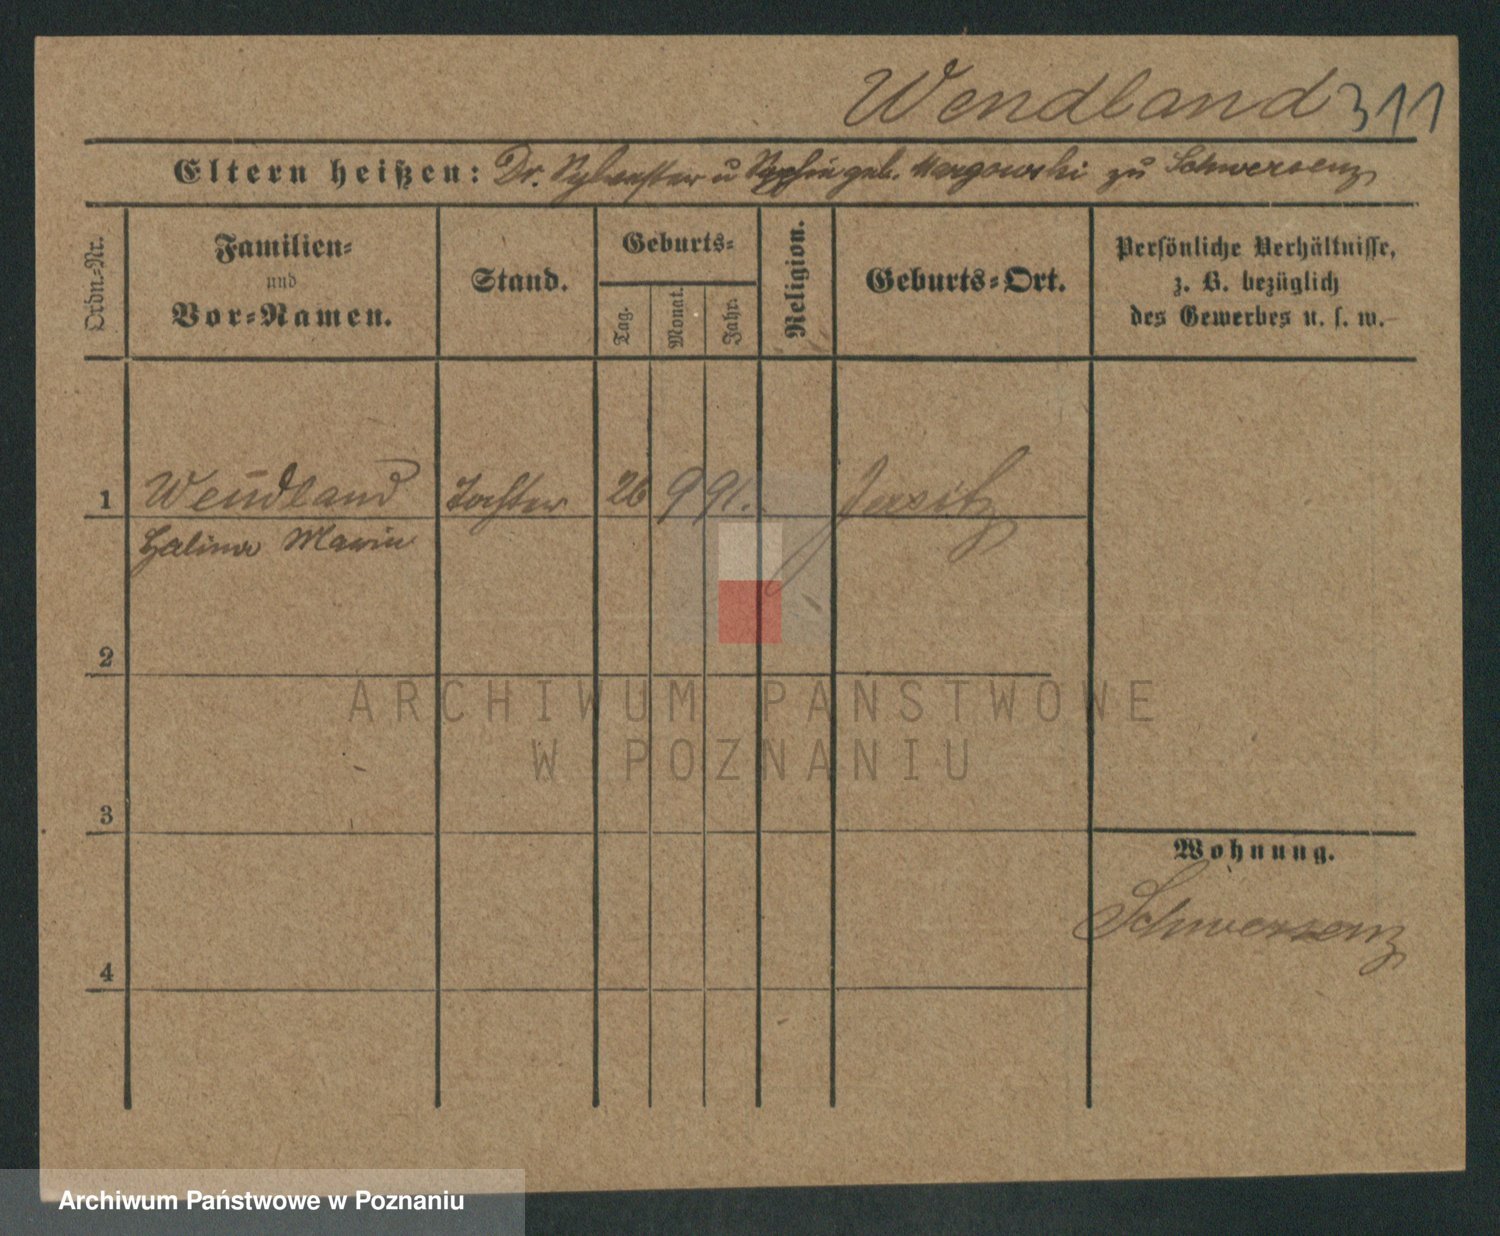 Wendland 311
Eltern heißen: Dr. Sylvester u Sophie geb. Margowski zu Schwersenz
Ordn.-Nr.
Familien-
und
Vor-Namen.
Stand.
Geburts-
Tag.
Monat.
Jahr.
Religion.
Geburts-Ort.
Persönliche Verhältnisse,
z. B. bezüglich
des Gewerbes u. s. w.
1 Wendland Tochter 26 9 91. Jersitz
Halina Marie
2
ARCHIWUM PAŃSTWOWE
W POZNANIU
3
Wohnung.
Schwersenz
4
Archiwum Państwowe w Poznaniu